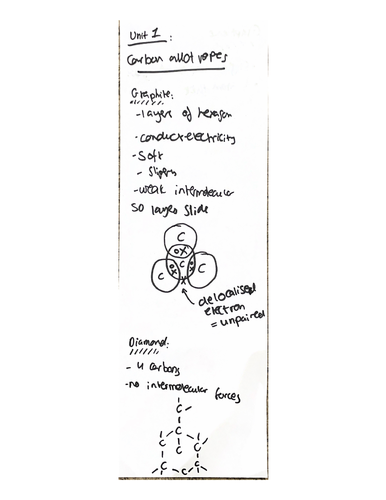 Unit 1:
Carbon allotropes
Graphite:
- layers of hexagon
- conduct electricity
- Soft
- Slippery
- weak intermolecular
so layers slide
C
OX
C
OX
OX
C
C
X
delocalised
electron
= unpaired
Diamond:
- 4 carbons
- no intermolecular forces
C
C
C
C
C
C
C
C
C